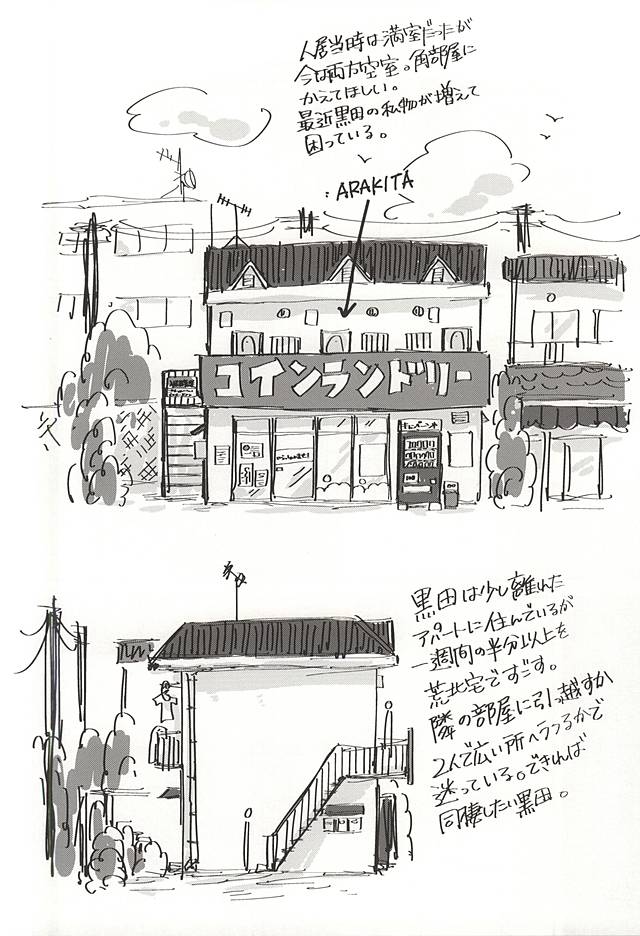 入居当時は満室だったが
今は両方空室。角部屋に
かえてほしい。
最近黒田の私物が増えて
困っている。
ARAKITA
コインランドリー
黒田は少し離れた
アパートに住んでいるが
一週間の半分以上を
荒北宅ですごす。
隣の部屋に引っ越すか
2人で広い所へうつるかで
迷っている。できれば
同棲したい黒田。